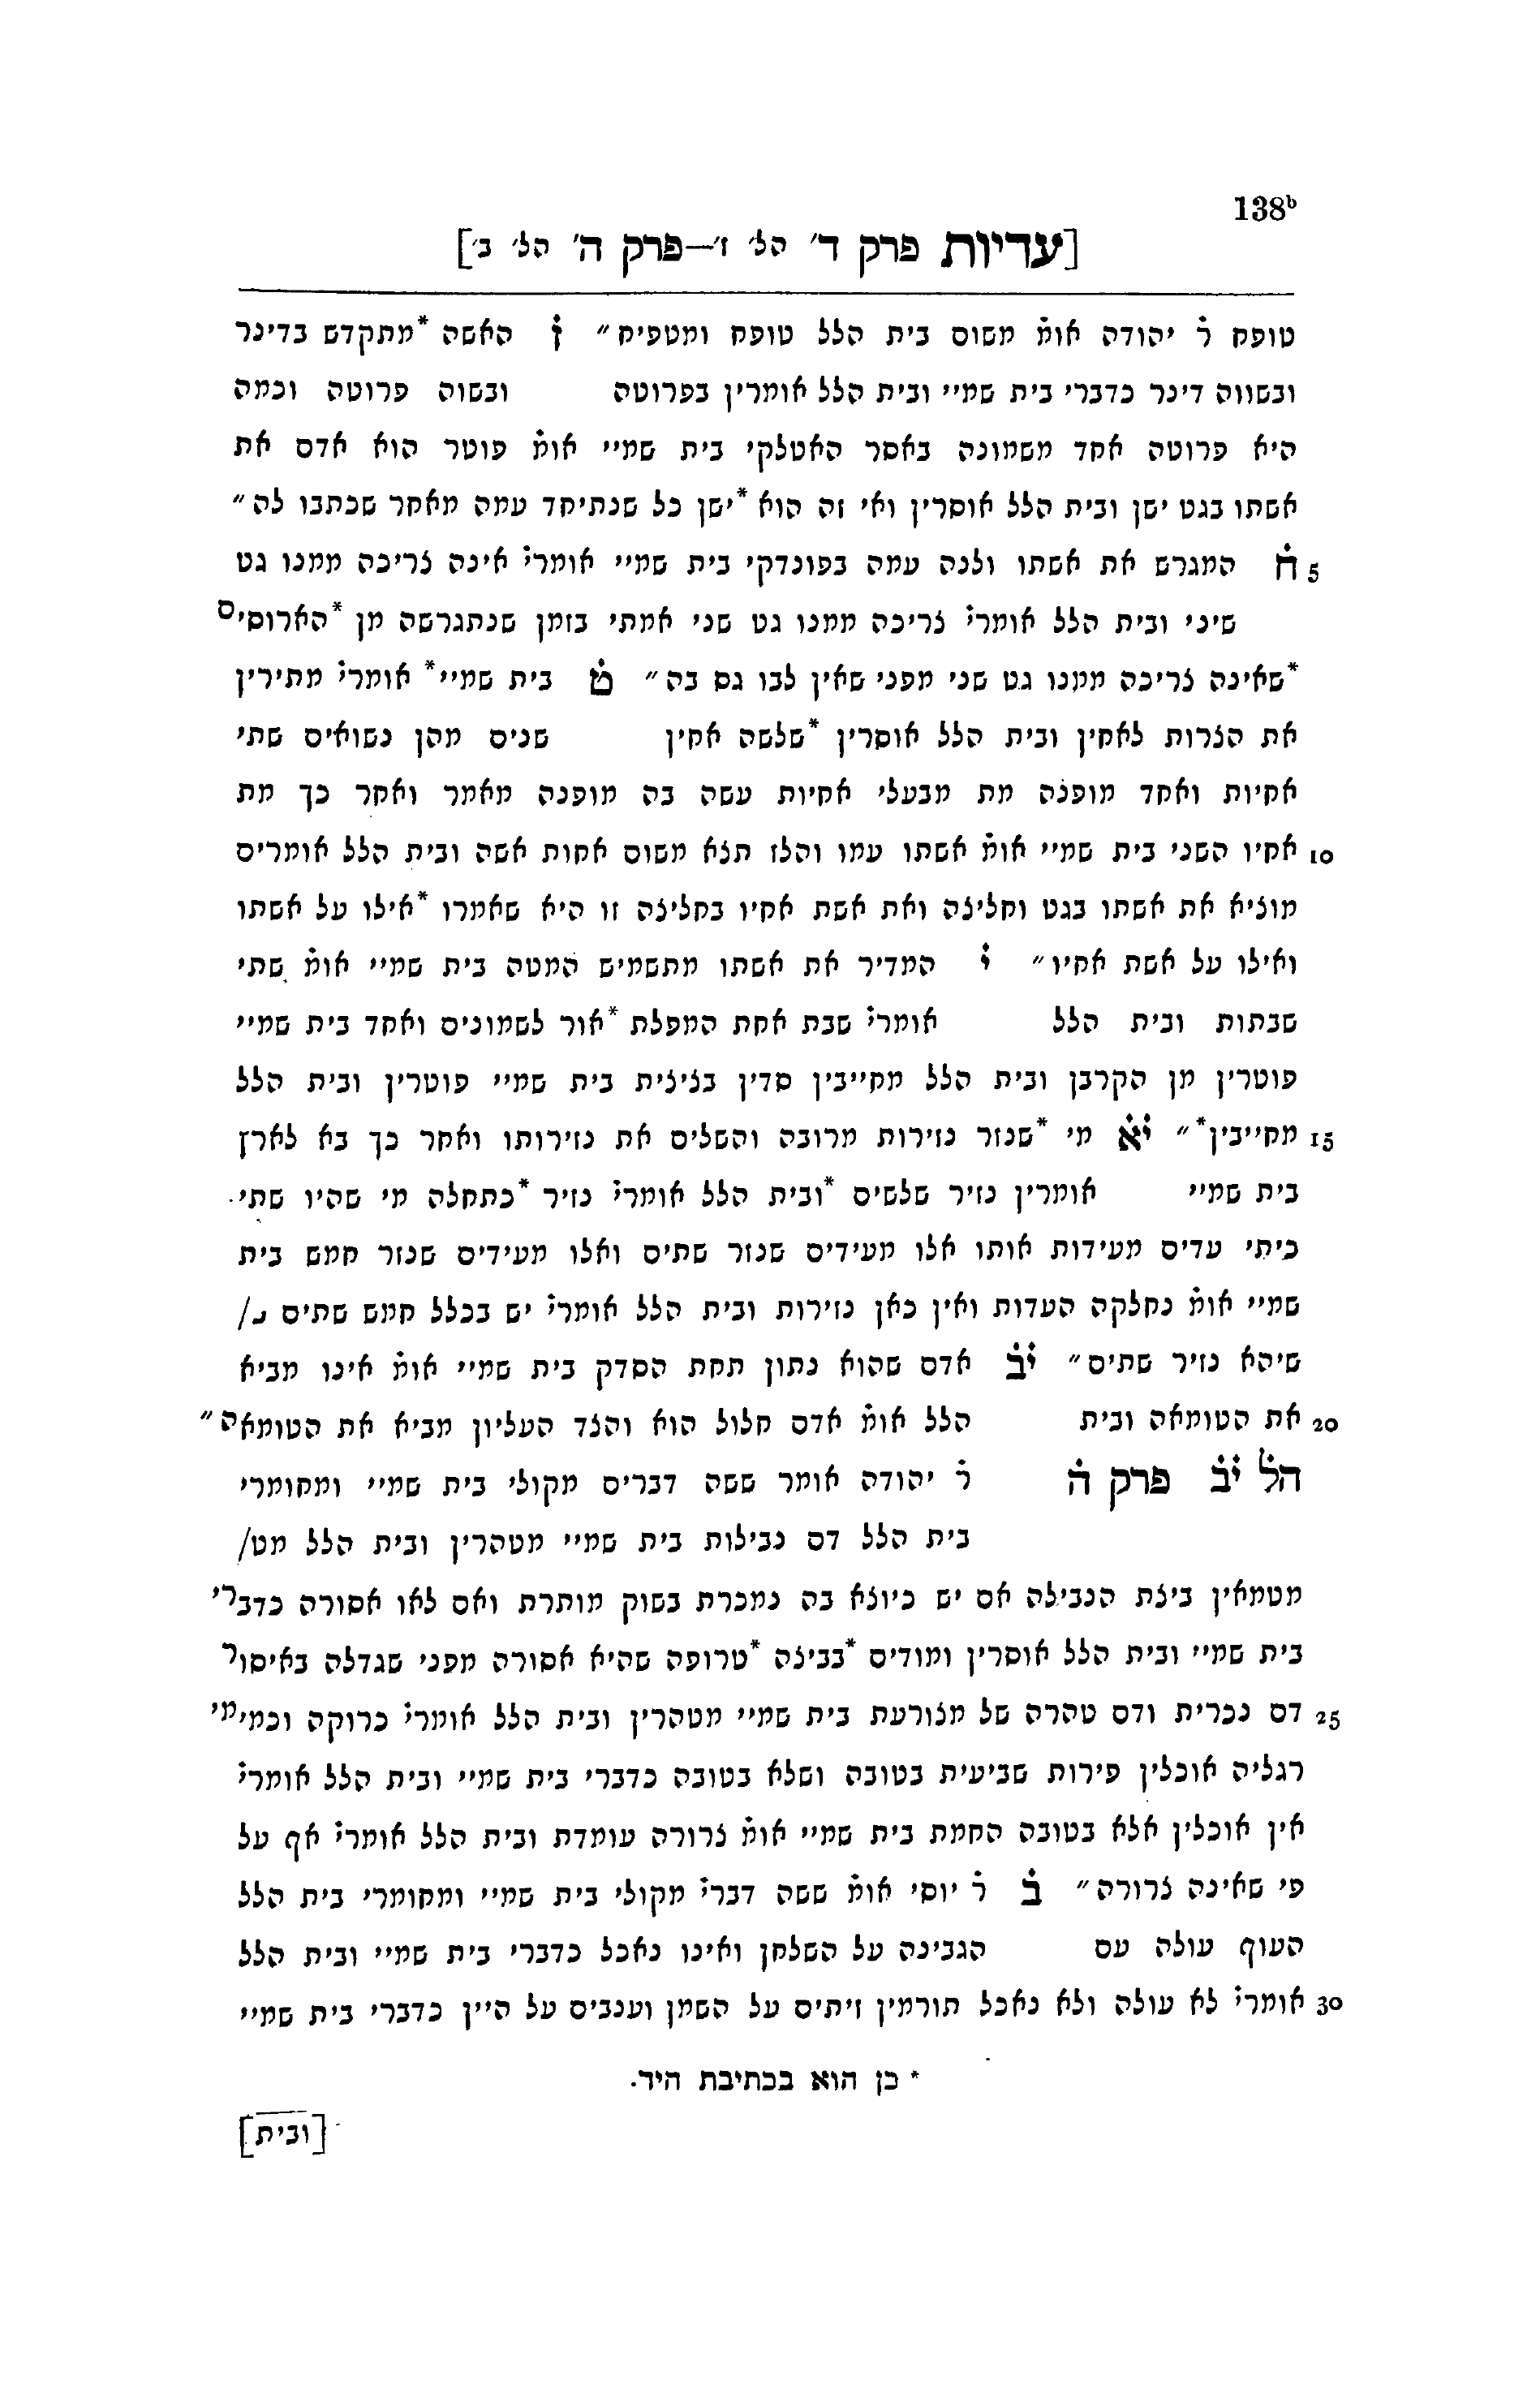 138ᵇ
[עדיות פרק ד׳ הל׳ ז׳—פרק ה׳ הל׳ ב׳]
טופח ר̇ יהודה אומ̇ משום בית הלל טופח ומטפיח״ ז̇ האשה *מתקדש בדינר
ובשווה דינר כדברי בית שמיי ובית הלל אומרין בפרוטה ובשוה פרוטה וכמה
היא פרוטה אחד משמונה באסר האטלקי בית שמיי אומ̇ פוטר הוא אדם את
אשתו בגט ישן ובית הלל אוסרין ואי זה הוא *ישן כל שנתיחד עמה מאחר שכתבו לה״
5 ח̇ המגרש את אשתו ולנה עמה בפונדקי בית שמיי אומרי̇ אינה צריכה ממנו גט
שיני ובית הלל אומרי̇ צריכה ממנו גט שני אמתי בזמן שנתגרשה מן *הארוסים
*שאינה צריכה ממנו גט שני מפני שאין לבו גס בה״ ט̇ בית שמיי* אומרי̇ מתירין
את הצרות לאחין ובית הלל אוסרין *שלשה אחין שנים מהן נשואים שתי
אחיות ואחד מופנה מת מבעלי אחיות עשה בה מופנה מאמר ואחר כך מת
10 אחיו השני בית שמיי אומ̇ אשתו עמו והלז תצא משום אחות אשה ובית הלל אומרים
מוציא את אשתו בגט וחליצה ואת אשת אחיו בחליצה זו היא שאמרו *אילו על אשתו
ואילו על אשת אחיו״ י̇ המדיר את אשתו מתשמיש המטה בית שמיי אומ̇ שתי
שבתות ובית הלל אומרי̇ שבת אחת המפלת *אור לשמונים ואחד בית שמיי
פוטרין מן הקרבן ובית הלל מחייבין סדין בציצית בית שמיי פוטרין ובית הלל
15 מחייבין*״ י̇א̇ מי *שנזר נזירות מרובה והשלים את נזירותו ואחר כך בא לארץ
בית שמיי אומרין נזיר שלשים *ובית הלל אומרי̇ נזיר *כתחלה מי שהיו שתי
כיתי עדים מעידות אותו אלו מעידים שנזר שתים ואלו מעידים שנזר חמש בית
שמיי אומ̇ נחלקה העדות ואין כאן נזירות ובית הלל אומרי̇ יש בכלל חמש שתים נ/
שיהא נזיר שתים״ י̇ב̇ אדם שהוא נתון תחת הסדק בית שמיי אומ̇ אינו מביא
20 את הטומאה ובית הלל אומ̇ אדם חלול הוא והצד העליון מביא את הטומאה״
הל̇ י̇ב̇ פרק ה̇ ר̇ יהודה אומר ששה דברים מקולי בית שמיי ומחומרי
בית הלל דם נבילות בית שמיי מטהרין ובית הלל מט/
מטמאין ביצת הנבילה אם יש כיוצא בה נמכרת בשוק מותרת ואם לאו אסורה כדברי
בית שמיי ובית הלל אוסרין ומודים *בביצה *טרופה שהיא אסורה מפני שגדלה באיסור
25 דם נכרית ודם טהרה של מצורעת בית שמיי מטהרין ובית הלל אומרי̇ כרוקה וכמימי
רגליה אוכלין פירות שביעית בטובה ושלא בטובה כדברי בית שמיי ובית הלל אומרי̇
אין אוכלין אלא בטובה החמת בית שמיי אומ̇ צרורה עומדת ובית הלל אומרי̇ אף על
פי שאינה צרורה״ ב̇ ר̇ יוסי אומ̇ ששה דברי̇ מקולי בית שמיי ומחומרי בית הלל
העוף עולה עם הגבינה על השלחן ואינו נאכל כדברי בית שמיי ובית הלל
30 אומרי̇ לא עולה ולא נאכל תורמין זיתים על השמן וענבים על היין כדברי בית שמיי
* כן הוא בכתיבת היד.
[ובית]